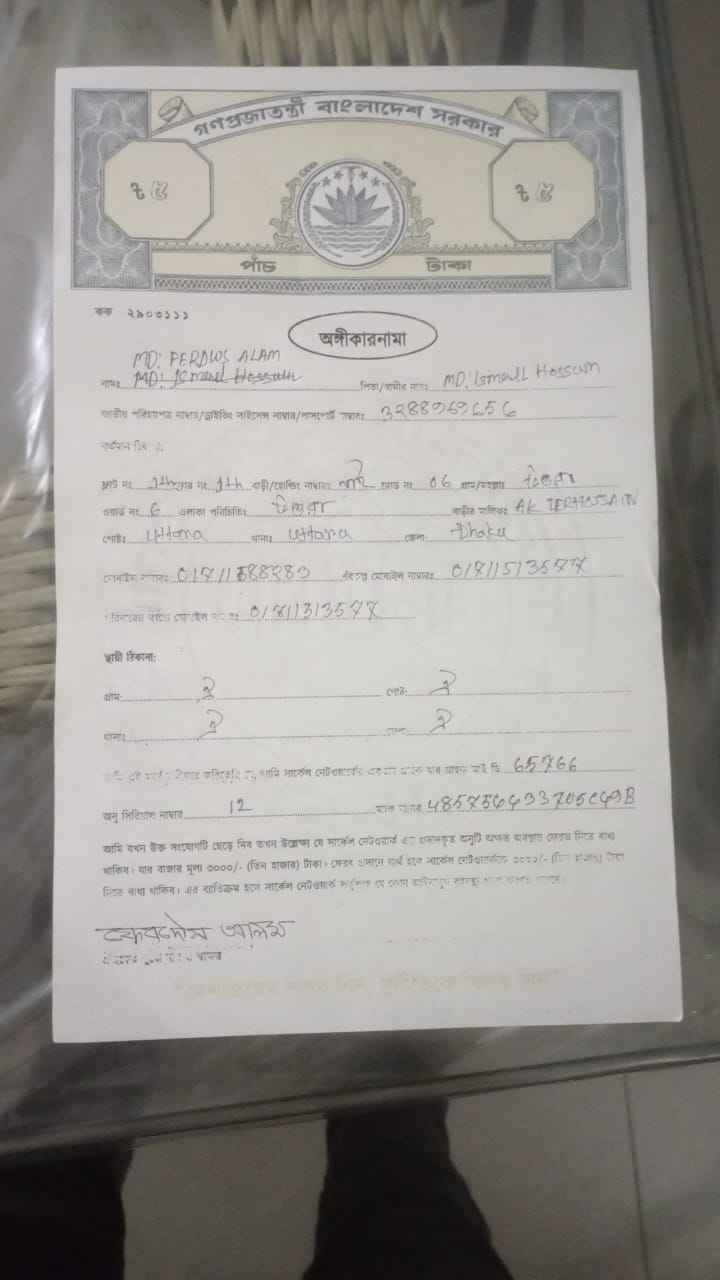 গণপ্রজাতন্ত্রী বাংলাদেশ সরকার
৳ ৫ ৳ ৫
পাঁচ টাকা
কক ২৯০৩১১১
অঙ্গীকারনামা
MD: FERDUS ALAM
নামঃ MD: Ismail Hossain পিতা/স্বামীর নামঃ MD: Ismail Hossain
জাতীয় পরিচয়পত্র নাম্বার/ড্রাইভিং লাইসেন্স নাম্বার/পাসপোর্ট নাম্বারঃ 3288969656
ফ্লাট নং 7th ফ্লোর নং 7th বাড়ী/হোল্ডিং নাম্বারঃ নাই রোড নং 06 গ্রাম/মহল্লাঃ
ওয়ার্ড নং 6 এলাকা পরিচিতিঃ বাড়ীর মালিকঃ AK TERHOSSAIN
পোষ্টঃ uttara থানাঃ uttara জেলাঃ Dhaka
মোবাইল নাম্বারঃ বিকল্প মোবাইল নাম্বারঃ 01711513577
মোবাইল
স্থায়ী ঠিকানা:
গ্রাম: ঐ পোষ্ট: ঐ
থানাঃ ঐ ঐ
আমি সার্কেল নেটওয়ার্কের 65766
অনু সিরিয়াল নাম্বার 12 4857564433705C49B
আমি যখন উক্ত সংযোগটি ছেড়ে দিব তখন উল্লেখ্য যে সার্কেল নেটওয়ার্ক এর প্রদানকৃত অনুটি অক্ষত অবস্থায় ফেরত দিতে বাধ্য
থাকিব। যার বাজার মূল্য ৩০০০/- (তিন হাজার) টাকা। ফেরৎ প্রদানে ব্যর্থ হলে সার্কেল নেটওয়ার্ককে ৩০০০/- (তিন হাজার) টাকা
দিতে বাধ্য থাকিব। এর ব্যতিক্রম হলে সার্কেল নেটওয়ার্ক কর্তৃপক্ষ যে কোন
ফেরদৌস আলম
"দেশপ্রেমের শপথ নিন, দুর্নীতিকে বিদায় দিন"